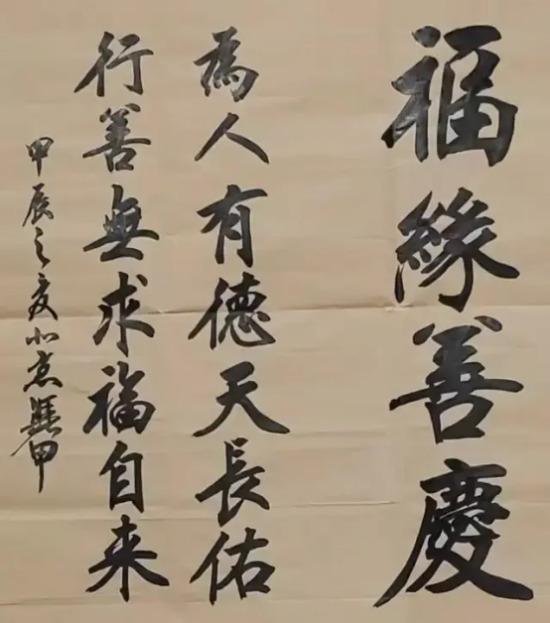 福緣善慶
為人有德天長佑
行善無求福自来
甲辰之夏